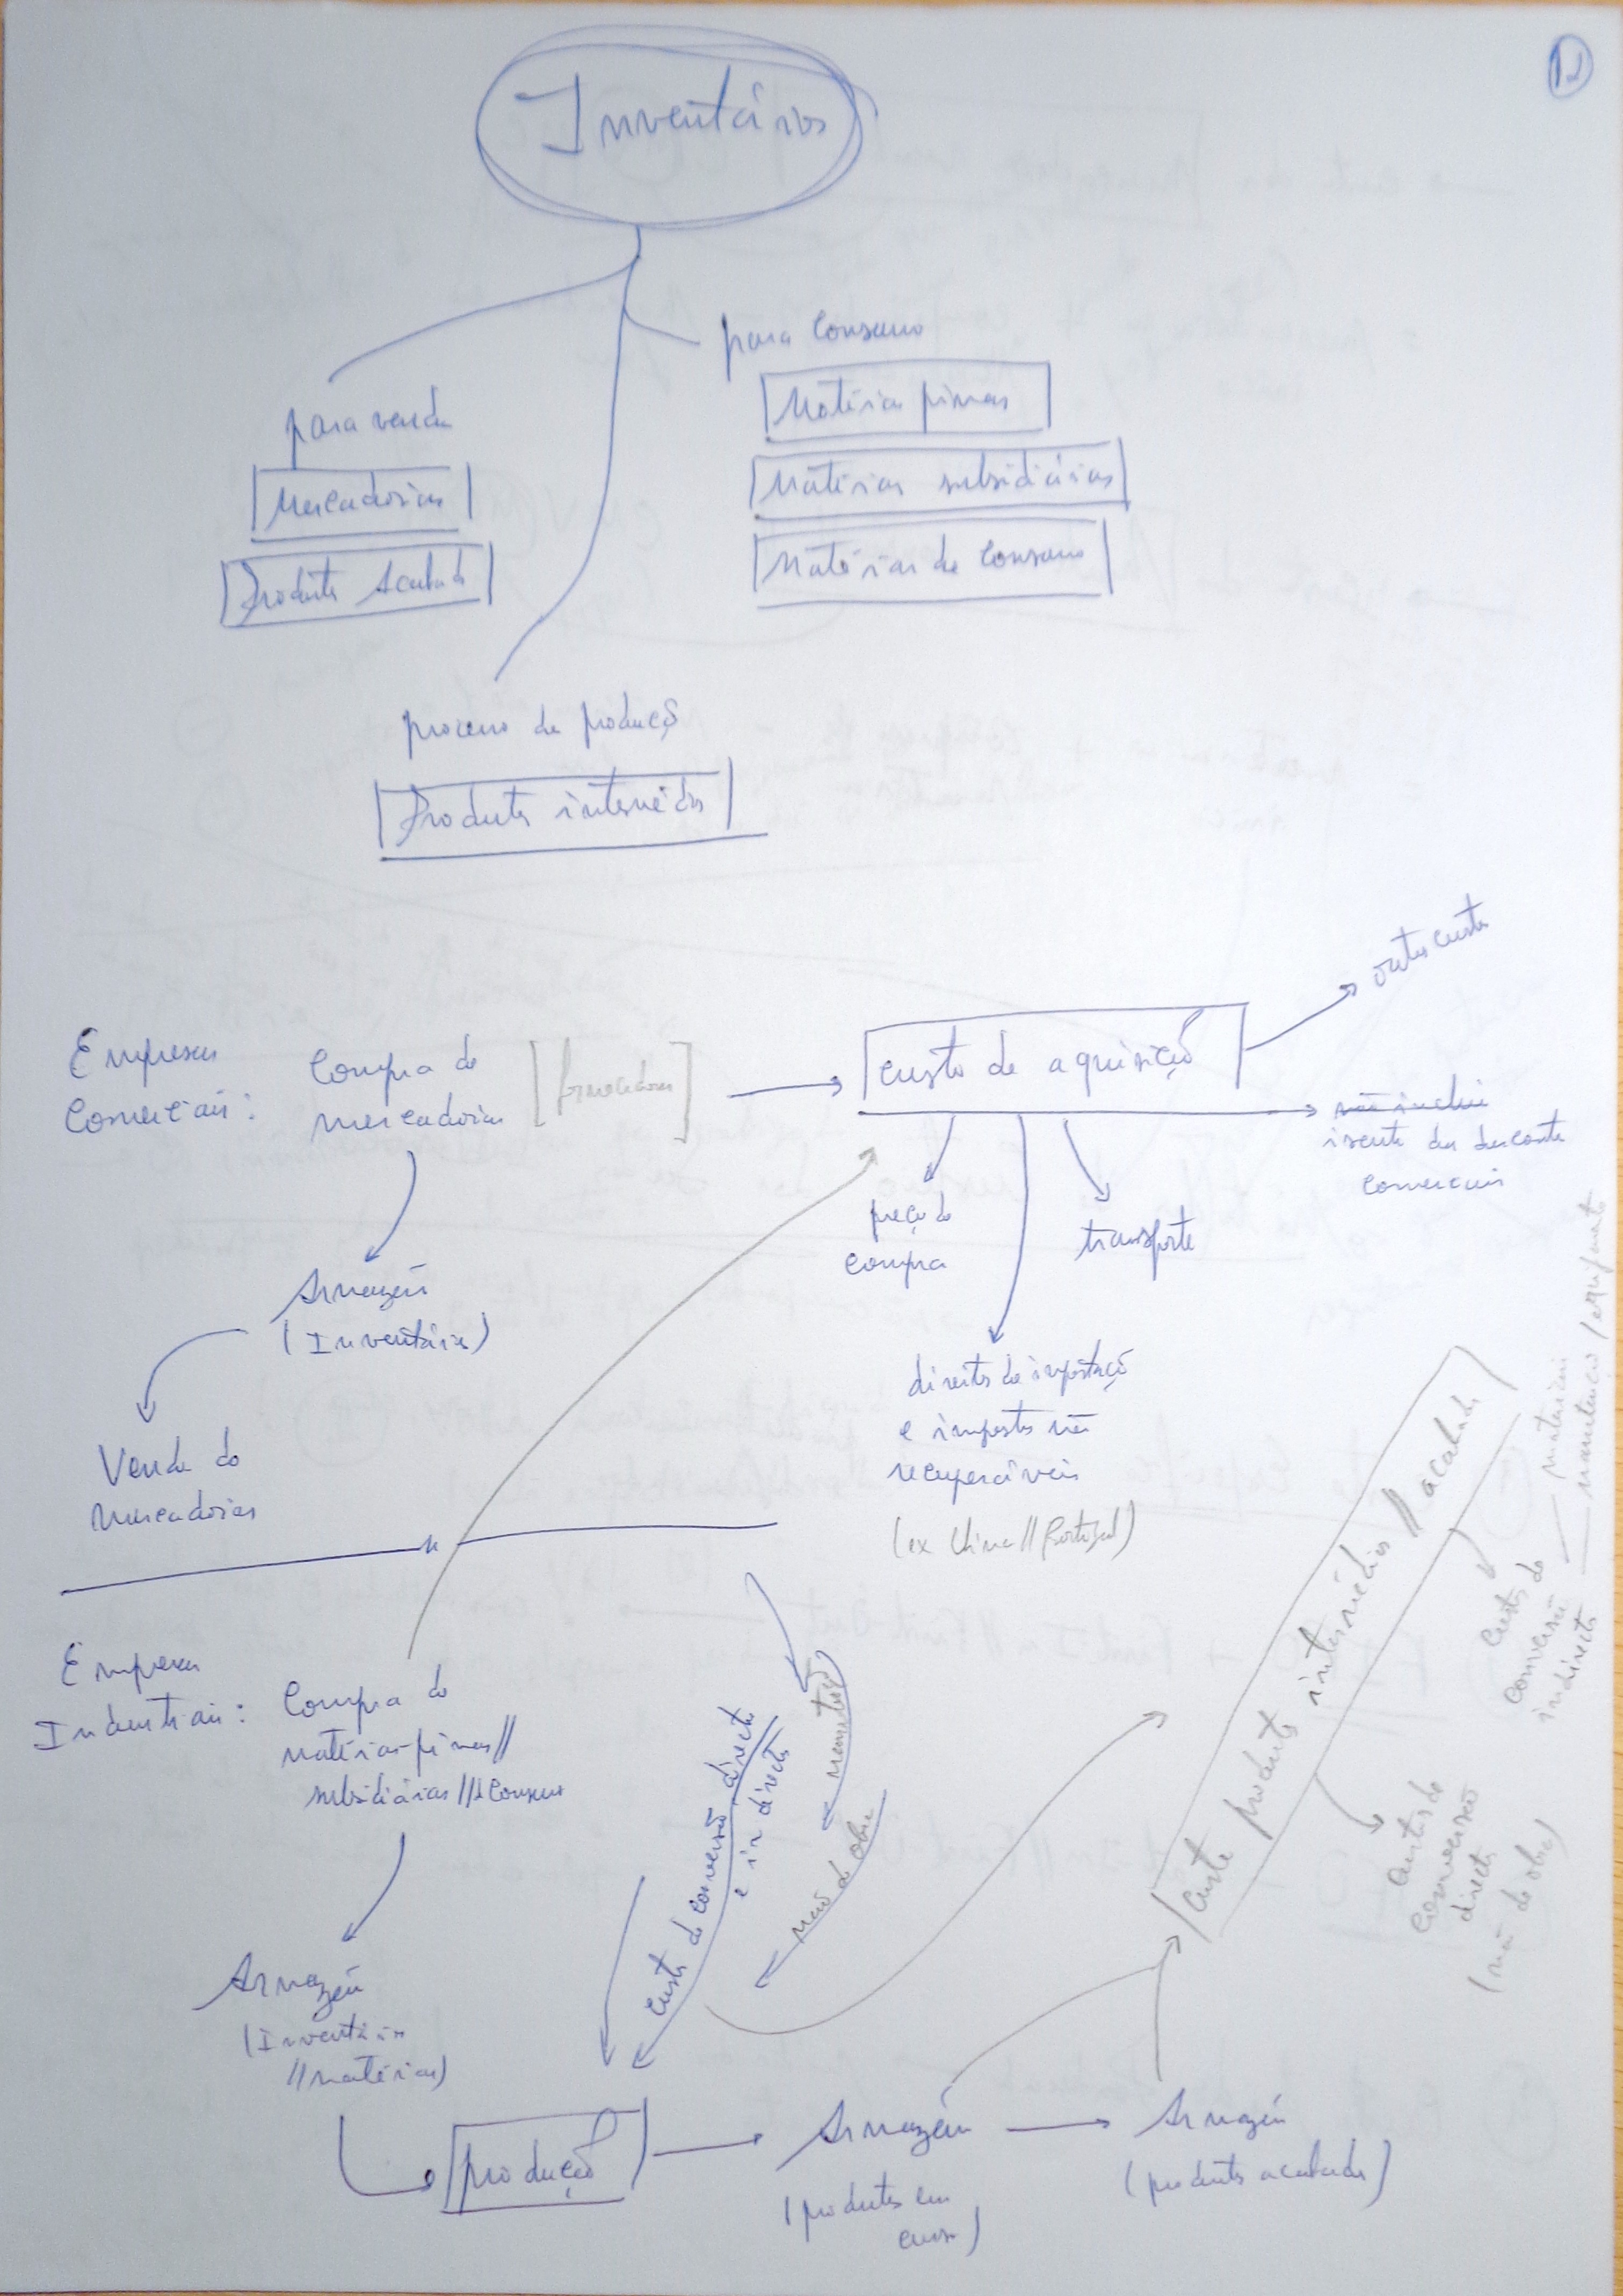 12
Inventários
para consumo
Matérias primas
Matérias subsidiárias
Matérias de consumo
para venda
Mercadorias
Produtos Acabados
processo de produção
Produtos intermédios
Empresas
Comerciais:
Compra de
mercadorias
[fornecedores]
custo de aquisição
outros custos
não inclui
isento dos descontos
comerciais
preço de
compra
transporte
direitos de importação
e impostos não
recuperáveis
(ex China // Portugal)
Armazém
(Inventários)
Venda de
Mercadorias
Empresas
Industriais:
Compra de
matérias-primas //
subsidiárias // consumo
Armazém
(Inventários
// matérias)
custos de conversão directos
e indirectos
mão de obra
produção
Armazém
(produtos em
curso)
Armazém
(produtos acabados)
Custo produtos intermédios // acabados
custos de
conversão
indirectos
materiais
manutenção / equipamento
custos de
conversão
directos
(mão de obra)